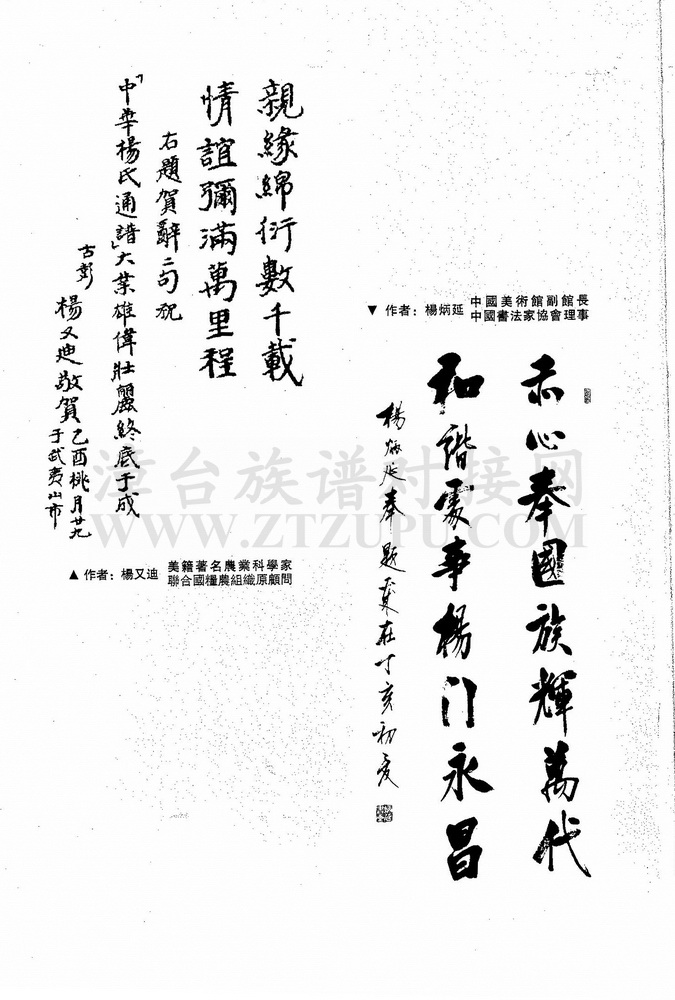 ▼ 作者：楊炳延
中國美術館副館長
中國書法家協會理事
赤心奉國族輝萬代
和諧處事楊门永昌
楊炳延奉題 歲在丁亥初夏
親緣綿衍數千載
情誼彌滿萬里程
右題賀辭二句祝
「中華楊氏通譜」大業雄偉壯麗終底于成
古彭 楊又迪敬賀
乙酉桃月廿九
于武夷山市
▲ 作者：楊又迪
美籍著名農業科學家
聯合國糧農組織原顧問
漳台族谱对接网
WWW.ZTZUPU.COM